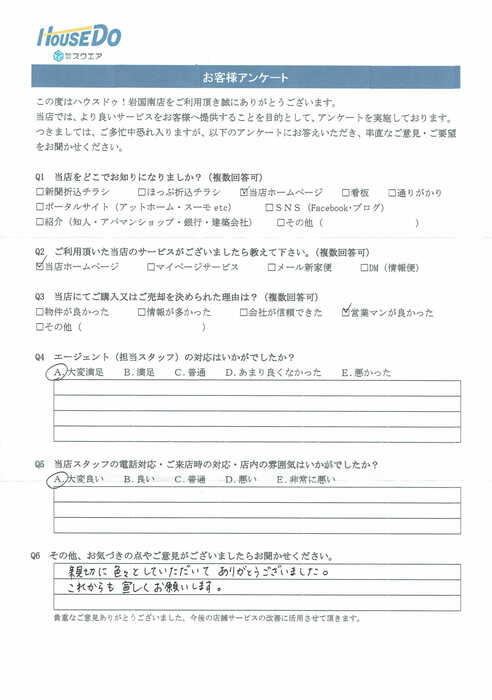 HOUSEDO
株式会社スウエア
お客様アンケート
この度はハウスドゥ！岩国南店をご利用頂き誠にありがとうございます。
当店では、より良いサービスをお客様へ提供することを目的として、アンケートを実施しております。
つきましては、ご多忙中恐れ入りますが、以下のアンケートにお答えいただき、率直なご意見・ご要望
をお聞かせください。
Q1 当店をどこでお知りになりましたか？（複数回答可）
□新聞折込チラシ □ほっぷ折込チラシ ☑当店ホームページ □看板 □通りがかり
□ポータルサイト（アットホーム・スーモ etc） □ＳＮＳ（Facebook・ブログ）
□紹介（知人・アパマンショップ・銀行・建築会社） □その他（ ）
Q2 ご利用頂いた当店のサービスがございましたら教えて下さい。（複数回答可）
☑当店ホームページ □マイページサービス □メール新家便 □DM（情報便）
Q3 当店にてご購入又はご売却を決められた理由は？（複数回答可）
□物件が良かった □情報が多かった □会社が信頼できた ☑営業マンが良かった
□その他（ ）
Q4 エージェント（担当スタッフ）の対応はいかがでしたか？
A.大変満足 B.満足 C.普通 D.あまり良くなかった E.悪かった
Q5 当店スタッフの電話対応・ご来店時の対応・店内の雰囲気はいかがでしたか？
A.大変良い B.良い C.普通 D.悪い E.非常に悪い
Q6 その他、お気づきの点やご意見がございましたらお聞かせください。
親切に色々としていただいてありがとうございました。
これからも宜しくお願いします。
貴重なご意見ありがとうございました。今後の店舗サービスの改善に活用させて頂きます。